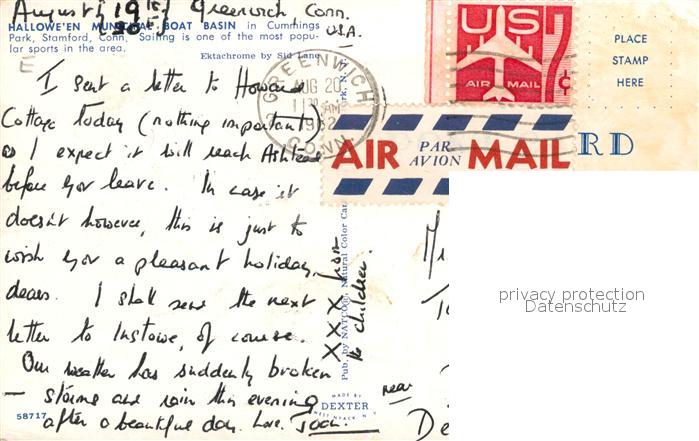 August {19th} Greenwich Conn.
{20th} U.S.A.
HALLOWE'EN MUNICIPAL BOAT BASIN in Cummings
Park, Stamford, Conn. Sailing is one of the most popu-
lar sports in the area.
Ektachrome by Sid Lane
E
I sent a letter to Howard
Cottage today (nothing important)
I expect it will reach Ashtead
before you leave. In case it
doesn't however, this is just to
wish you a pleasant holiday,
dears. I shall send the next
letter to Instowe, of course.
Our weather has suddenly broken
— storms and rain this evening
after a beautiful day. Love. Joan.
XXX from
the children.
58717
Pub. by NATCOR, Natural Color Car
MADE BY
DEXTER
WEST NYACK, N.Y.
GREENWICH
AUG 20
11 30 AM
1962
CONN.
US
7¢
AIR MAIL
PLACE
STAMP
HERE
AIR PAR AVION MAIL
RD
near
De
privacy protection
Datenschutz